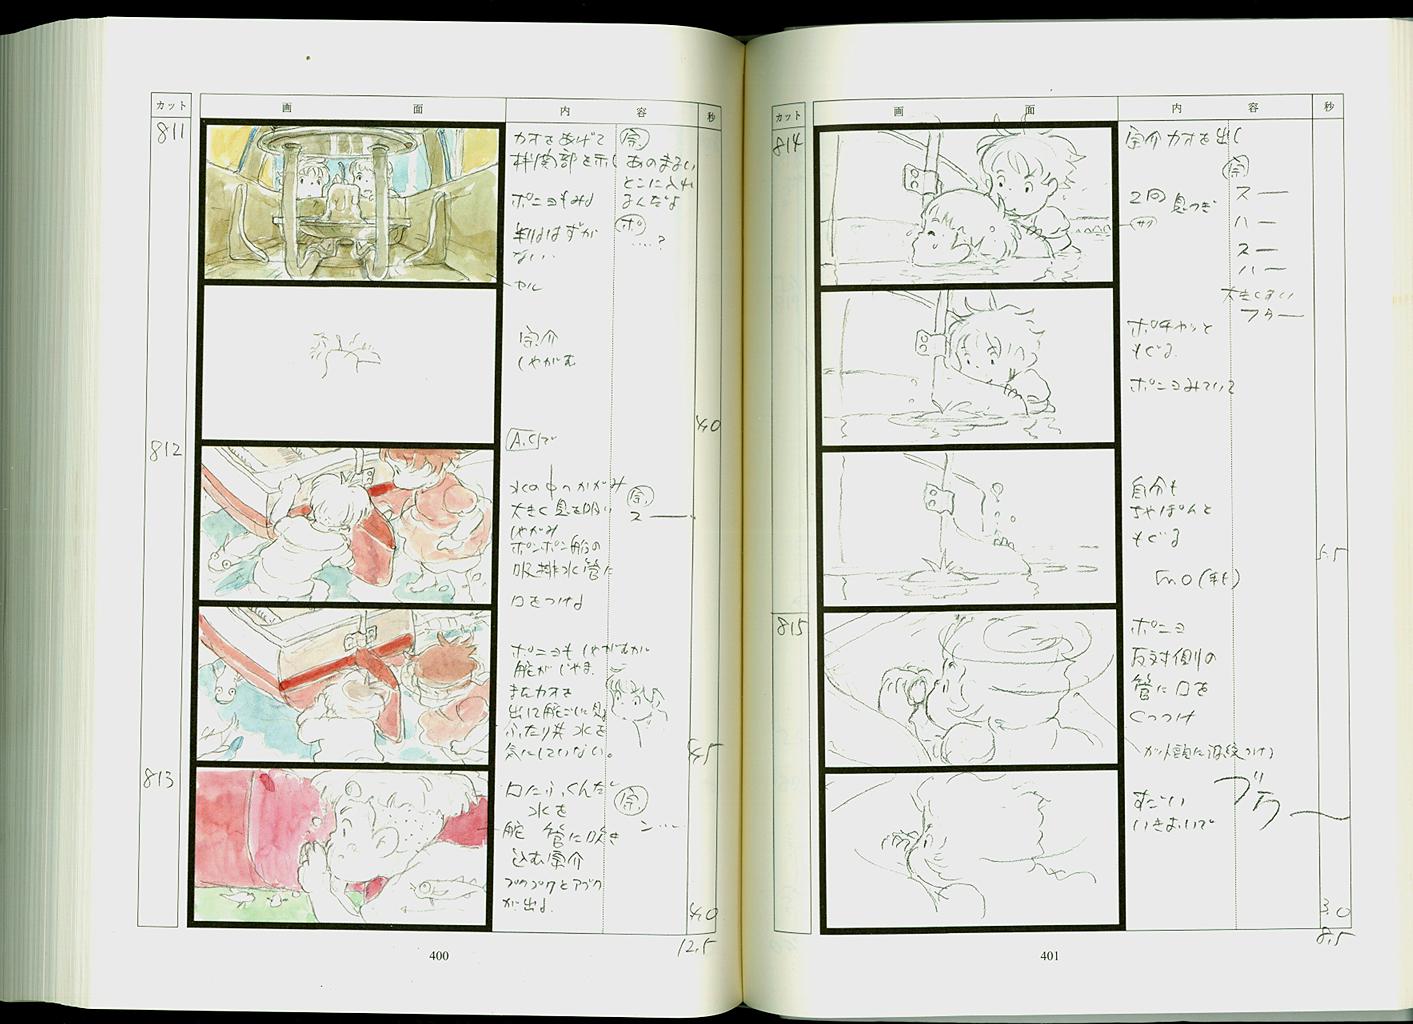 カット
画 面
内 容
秒
811
カオをあげて
機関部を示し
ポニョもみる
判るはずが
ない‥
宗
あのまるい
とこに入れ
るんだよ
ポ
‥‥?
セル
宗介
しゃがむ
4.0
812
A.C.で
水の中へかがみ
大きく息を吸い
しゃがみ
ポンポン船の
吸排水管に
口をつける
宗
スー
ポニョもしゃがむが
舵がじゃま
またカオを
出して舵ごしに見る
ふたり共 水を
気にしていない。
4.5
813
口にふくんだ
水を
管に吹き
込む宗介
ブクブクとアブク
が出る
宗
ン‥‥
4.0
400
12.5
カット
画 面
内 容
秒
814
宗介カオを出し
2回 息つぎ
宗
スー
ハー
スー
ハー
大きくすい
ポチャンと
もぐる
ポニョみていて
自分も
ちゃぽんと
もぐる
5.5
815
ポニョ
反対側の
管に口を
くっつけ
すごい
いきおいで
ブウー
3.0
8.5
401